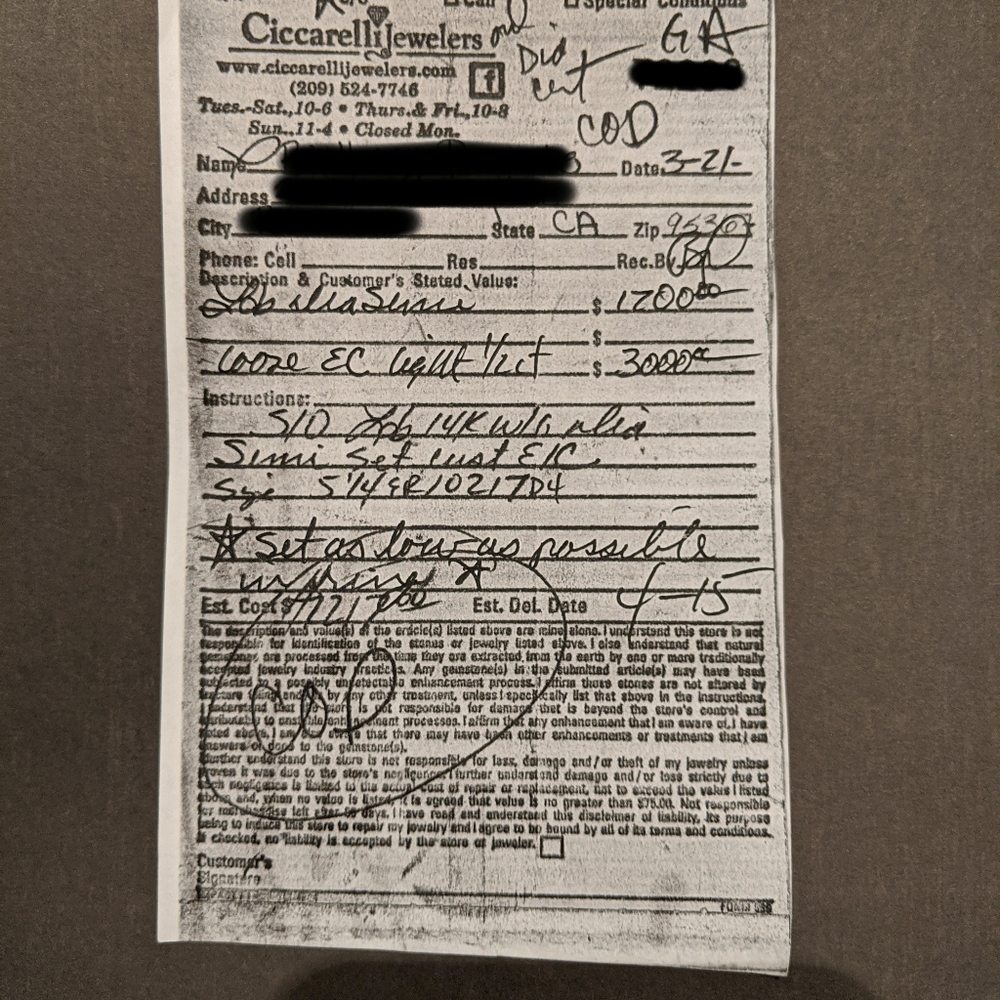 Special Conditions
Ciccarelli Jewelers
www.ciccarellijewelers.com
(209) 524-7746
Tues.-Sat.,10-6 • Thurs.& Fri.,10-8
Sun.,11-4 • Closed Mon.
Did cert
GA
COD
Name Date 3-21-
Address
City State CA Zip 9530
Phone: Cell Res Rec.By
Description & Customer's Stated Value:
$ 1200.00
$
Loose EC Light 1/2ct $ 3000
Instructions:
S/O 14K
Semi set cust E/C
514GR1021704
☆ Set as low as possible
☆
Est. Cost $ Est. Del. Date 4-15
The description and value(s) of the article(s) listed above are mine alone. I understand this store is not
responsible for identification of the stones or jewelry listed above. I also understand that natural
gemstones are processed from the time they are extracted from the earth by one or more traditionally
accepted jewelry industry practices. Any gemstone(s) in the submitted article(s) may have been
subjected to a possibly undetectable enhancement process. I affirm these stones are not altered by
fracture filling and/or by any other treatment, unless I specifically list that above in the instructions.
I understand that the store is not responsible for damage that is beyond the store's control and
attributable to unstable enhancement processes. I affirm that any enhancement that I am aware of, I have
noted above. I am also aware that there may have been other enhancements or treatments that I am
unaware of done to the gemstone(s).
I further understand this store is not responsible for loss, damage and/or theft of my jewelry unless
proven it was due to the store's negligence. I further understand damage and/or loss strictly due to
such negligence is limited to the actual cost of repair or replacement, not to exceed the value I listed
above and, when no value is listed, it is agreed that value is no greater than $75.00. Not responsible
for merchandise left after 60 days. I have read and understand this disclaimer of liability, its purpose
being to induce this store to repair my jewelry and I agree to be bound by all of its terms and conditions.
If checked, no liability is accepted by the store or jeweler.
Customer's
Signature